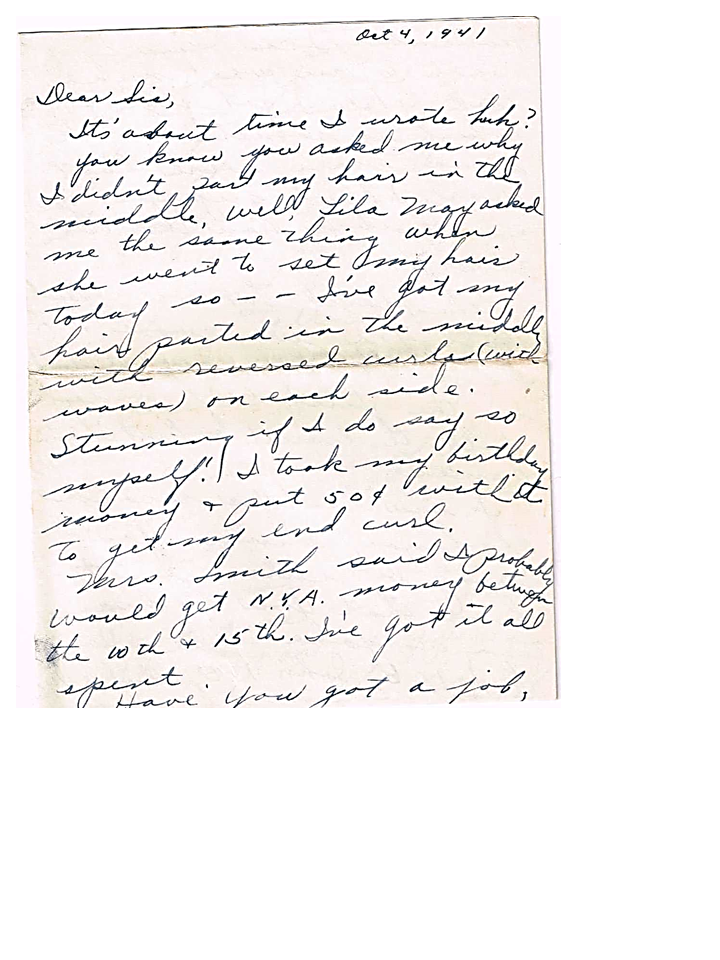 Oct 4, 1941
Dear Sis,
It's about time I wrote huh?
you know you asked me why
I didn't part my hair in the
middle, well, Lila May asked
me the same thing when
she went to set my hair
today so - - I've got my
hair parted in the middle
with reversed curls (with
waves) on each side.
Stunning if I do say so
myself! I took my birthday
money & put 50¢ with it
to get my end curl.
Mrs. Smith said I probably
would get N.Y.A. money between
the 10th & 15th. I've got it all
spent
Have you got a job,